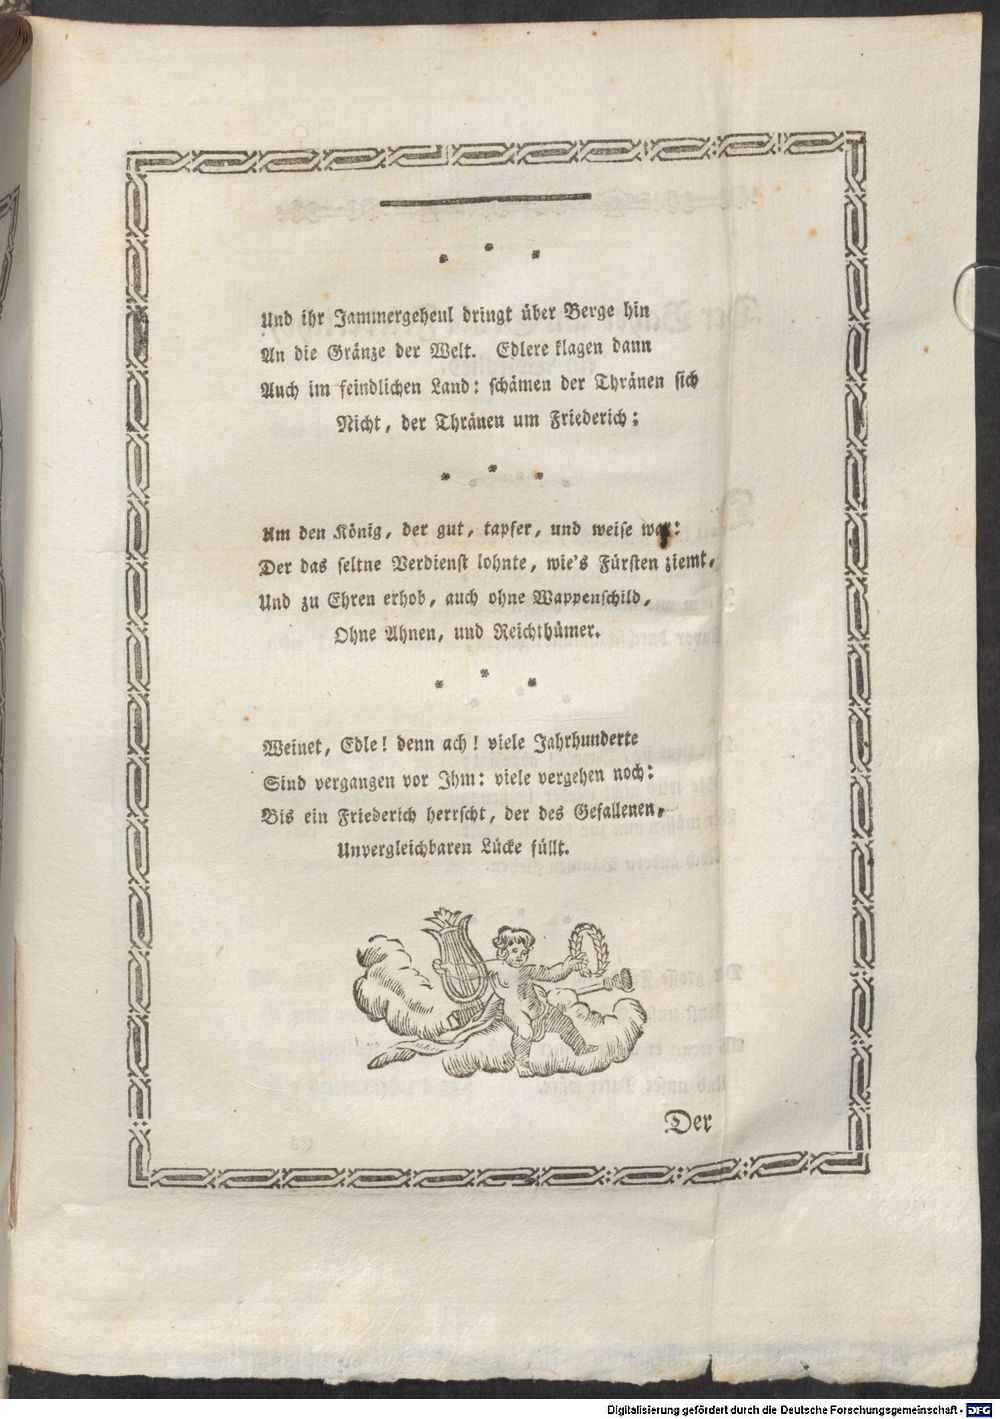 * * *
Und ihr Jammergeheul dringt über Berge hin
An die Gränze der Welt. Edlere klagen dann
Auch im feindlichen Land: schämen der Thränen sich
Nicht, der Thränen um Friederich;
* * *
Um den König, der gut, tapfer, und weise war:
Der das seltne Verdienst lohnte, wie's Fürsten ziemt,
Und zu Ehren erhob, auch ohne Wappenschild,
Ohne Ahnen, und Reichthümer.
* * *
Weinet, Edle! denn ach! viele Jahrhunderte
Sind vergangen vor Ihm: viele vergehen noch:
Bis ein Friederich herrscht, der des Gefallenen,
Unvergleichbaren Lücke füllt.
Der
Digitalisierung gefördert durch die Deutsche Forschungsgemeinschaft - DFG